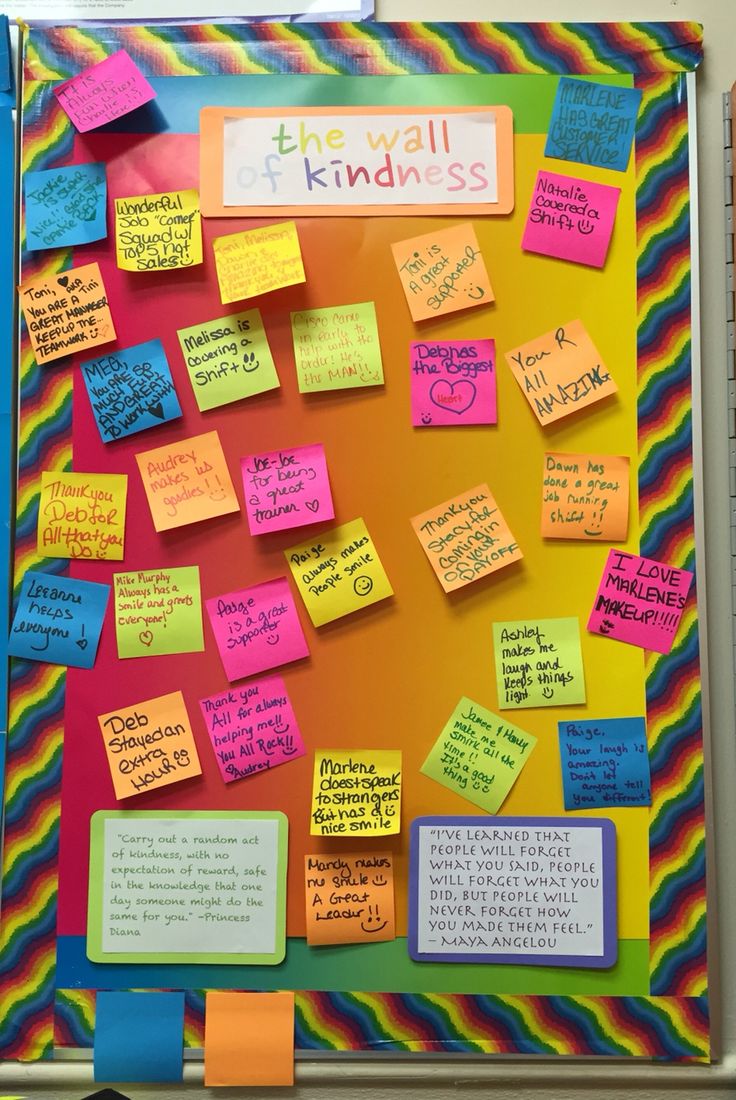 It is
Always
fun when
Charlie is
Here!!
MARLENE
HAS GREAT
CUSTOMER
SERVICE!
the wall
of kindness
Jackie is super
Nice!!
Wonderful
Job "Corner"
Squad w/
TOPS Not
Sales!!
Natalie
covered a
Shift
Toni, Melissa,
Dawn &
Toni is
A great
supporter
Toni, AKA
Tini
YOU ARE A
GREAT MANAGER
KEEP UP THE...
TEAMWORK
Melissa is
covering a
Shift
Cisco came
in early to
help with the
order! He's
the MAN!!
Deb has
the Biggest
Heart
You R
All
AMAZING
MEG,
YOU ARE SO
MUCH FUN
AND GREAT
TO WORK WITH
Audrey
makes us
goodies!!
JOE-JOE
for being
a great
trainer
Dawn has
done a great
job running
shift!!
Thank you
Deb for
All that you
Do
Thank you
Stacy for
coming in
on your
DAY OFF
Paige
always makes
People smile
Leeanne
helps
everyone!
Mike Murphy
Always has a
smile and greets
everyone!
Paige
is a great
supporter
I LOVE
MARLENE'S
MAKEUP!!!!!
Ashley
makes me
laugh and
keeps things
light
Deb
Stayed an
extra
Hour
Thank you
All for always
helping me!!
You All Rock!!
Audrey
James & Harley
make me
smirk all the
time!!
It's a good
thing
Paige,
Your laugh is
amazing.
Don't let
anyone tell
you different!
Marlene
doest speak
to strangers
But has a
nice smile
"Carry out a random act
of kindness, with no
expectation of reward, safe
in the knowledge that one
day someone might do the
same for you." -Princess
Diana
Mandy makes
me smile
A Great
Leader!!
"I've learned that
people will forget
what you said, people
will forget what you
did, but people will
never forget how
you made them feel."
– Maya Angelou